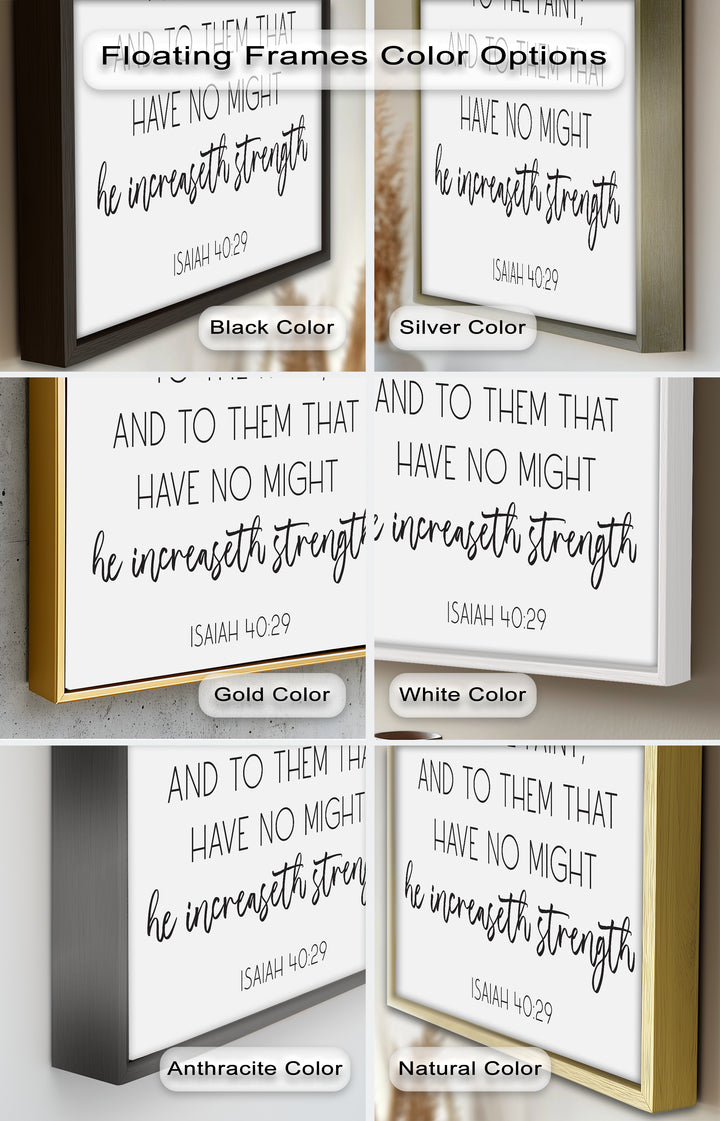 Floating Frames Color Options
AND TO THEM THAT
HAVE NO MIGHT
he increaseth strength
ISAIAH 40:29
Black Color
TO THE FAINT,
AND TO THEM THAT
HAVE NO MIGHT
he increaseth strength
ISAIAH 40:29
Silver Color
AND TO THEM THAT
HAVE NO MIGHT
he increaseth strength
ISAIAH 40:29
Gold Color
AND TO THEM THAT
HAVE NO MIGHT
increaseth strength
ISAIAH 40:29
White Color
AND TO THEM THA
HAVE NO MIGHT
he increaseth streng
ISAIAH 40:29
Anthracite Color
FAINT,
AND TO THEM THAT
HAVE NO MIGHT
he increaseth strength
ISAIAH 40:29
Natural Color